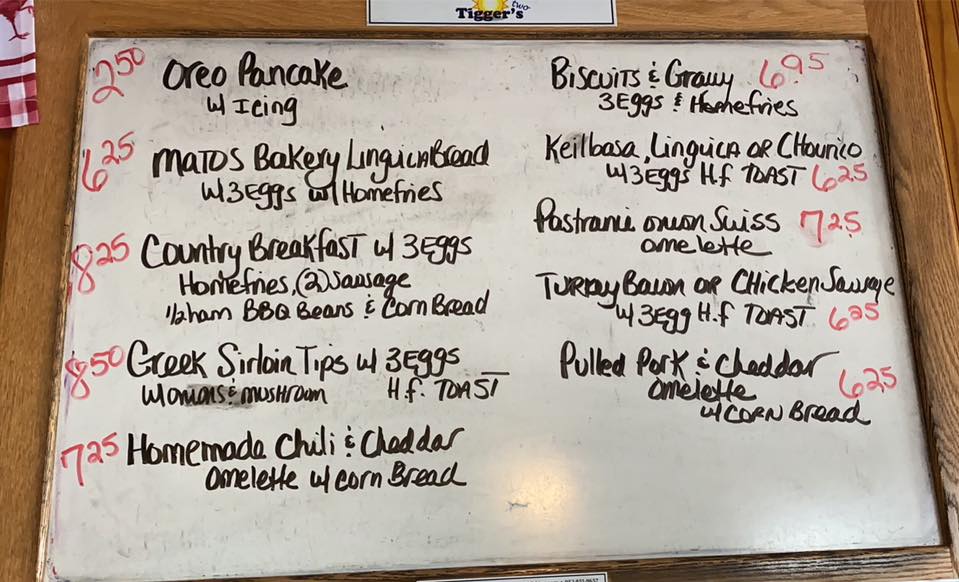 two
Tigger's
2.50 Oreo Pancake
w/ Icing
6.25 Matos Bakery Linguica Bread
w/ 3 Eggs w/ Homefries
8.25 Country Breakfast w/ 3 Eggs
Homefries, (2) Sausage
1/2 ham BBQ Beans & Corn Bread
8.50 Greek Sirloin Tips w/ 3 Eggs
w/ onions & mushroom H.f. TOAST
7.25 Homemade Chili & Cheddar
omelette w/ corn Bread
Biscuits & Gravy 6.95
3 Eggs & Homefries
Keilbasa, Linguica OR Chourico
w/ 3 Eggs H.f TOAST 6.25
Pastrami onion Suiss 7.25
omelette
Turkey Bacon OR Chicken Sausage
w/ 3 Egg H.f TOAST 6.25
Pulled Pork & Cheddar
omelette 6.25
w/ CORN Bread